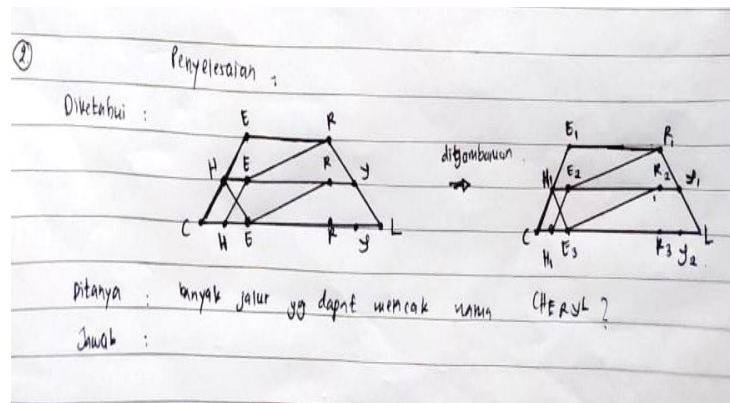 ② Penyelesaian :
Diketahui :
E R E₁ R₁
digambarkan
H E R y H₁ E₂ R₂ y₁
C H E R y L C H₁ E₃ R₃ y₂ L
Ditanya : banyak jalur yg dapat mencak nama CHERYL ?
Jawab :